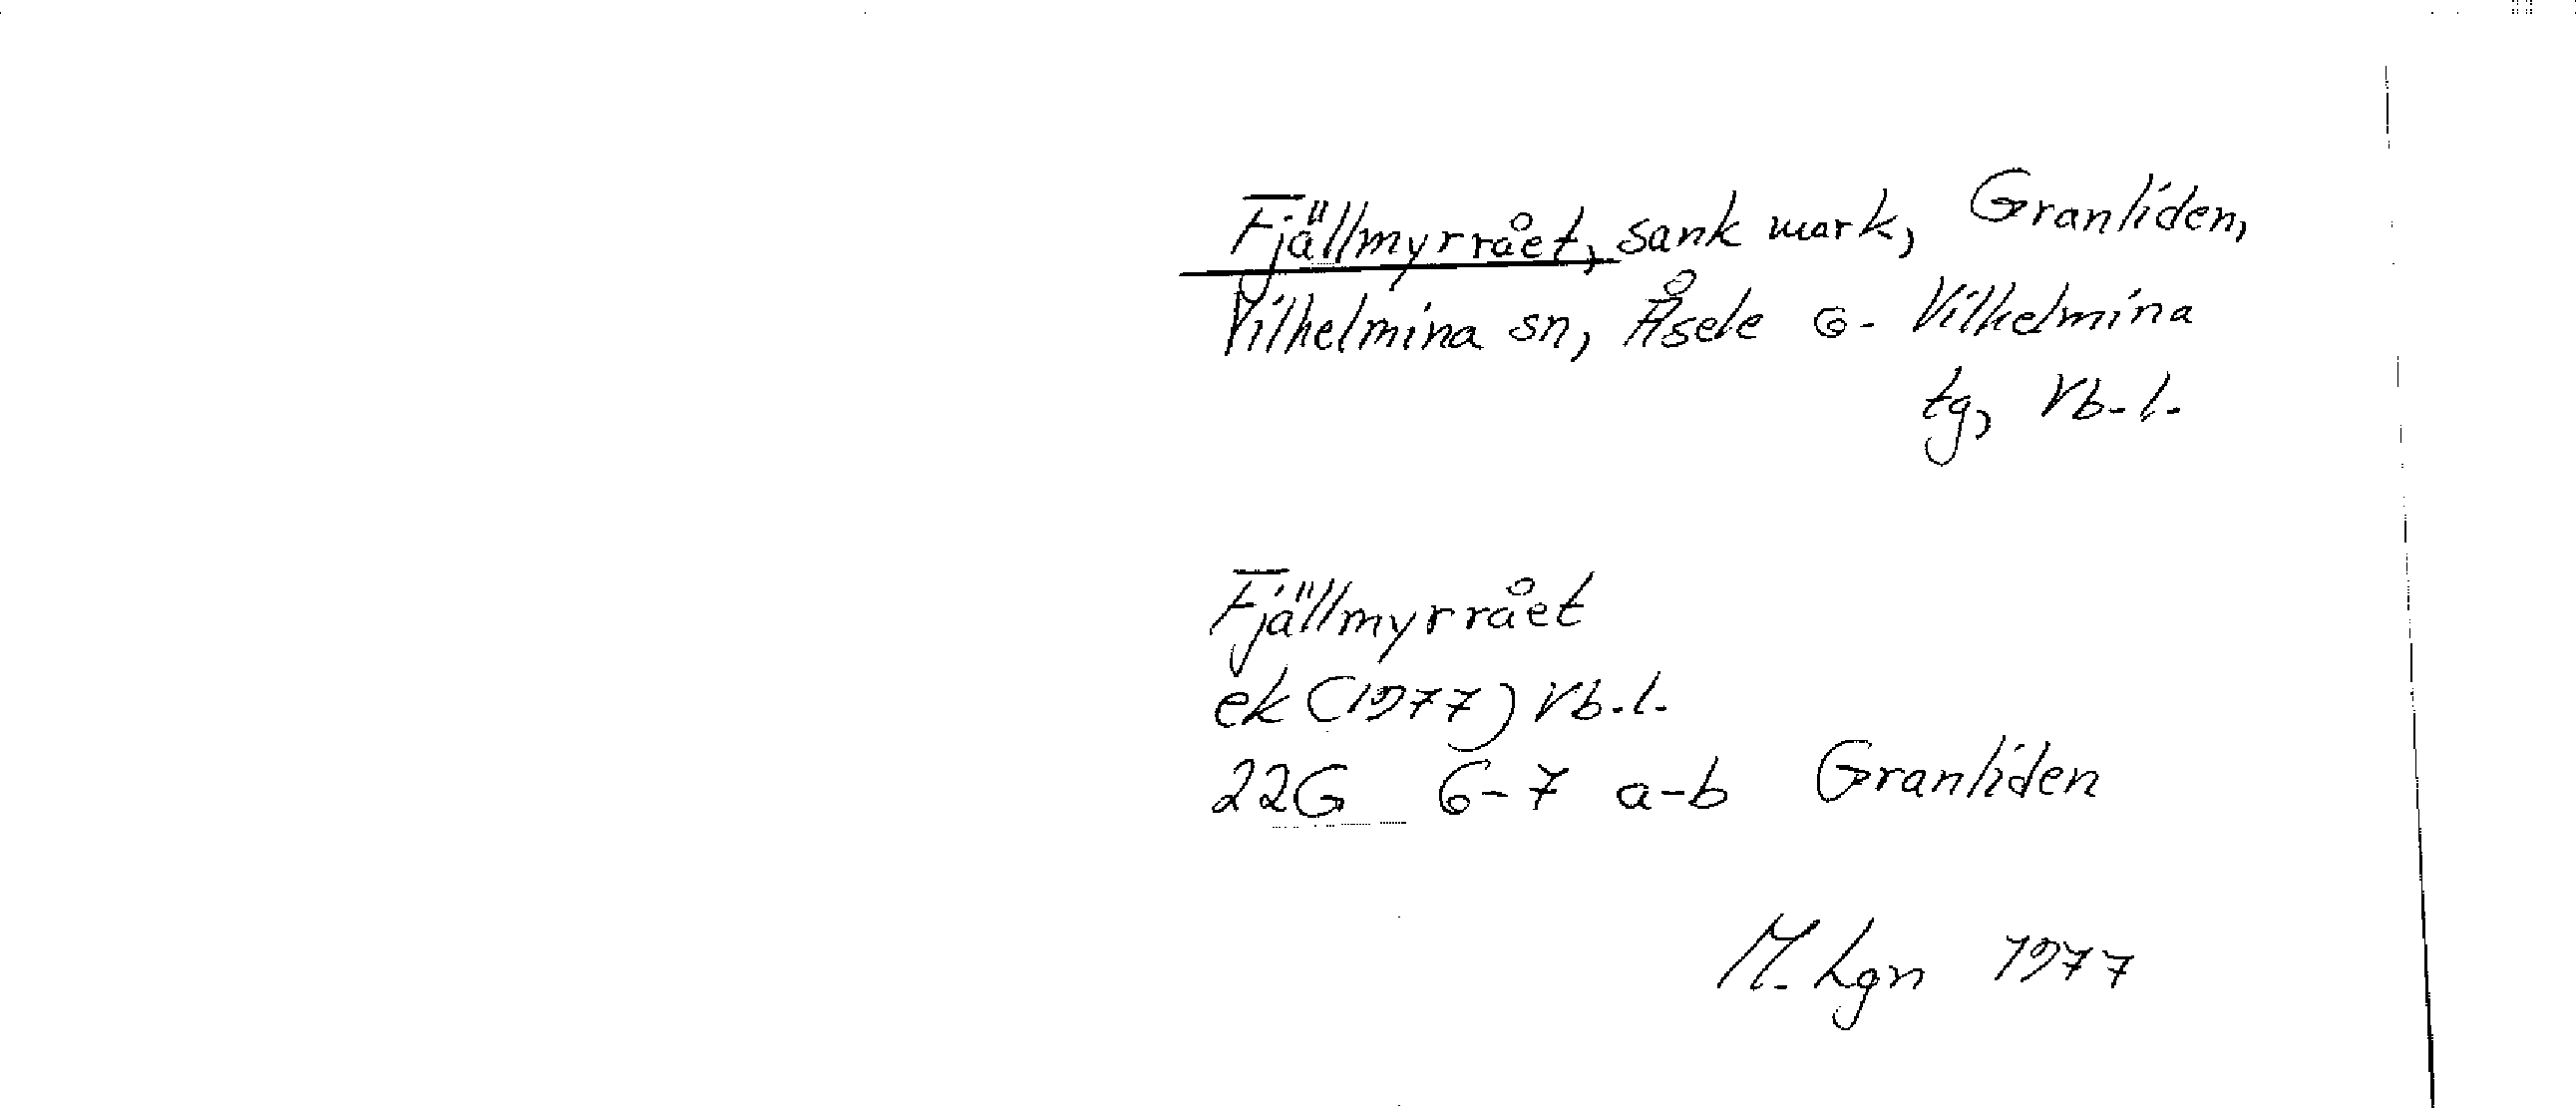 Fjällmyrrået, sank mark, Granliden,
Vilhelmina sn, Åsele o. Vilhelmina
tg, Vb. l.
Fjällmyrrået
ek (1977) Vb. l.
22G 6-7 a-b Granliden
M. Lgn 1977